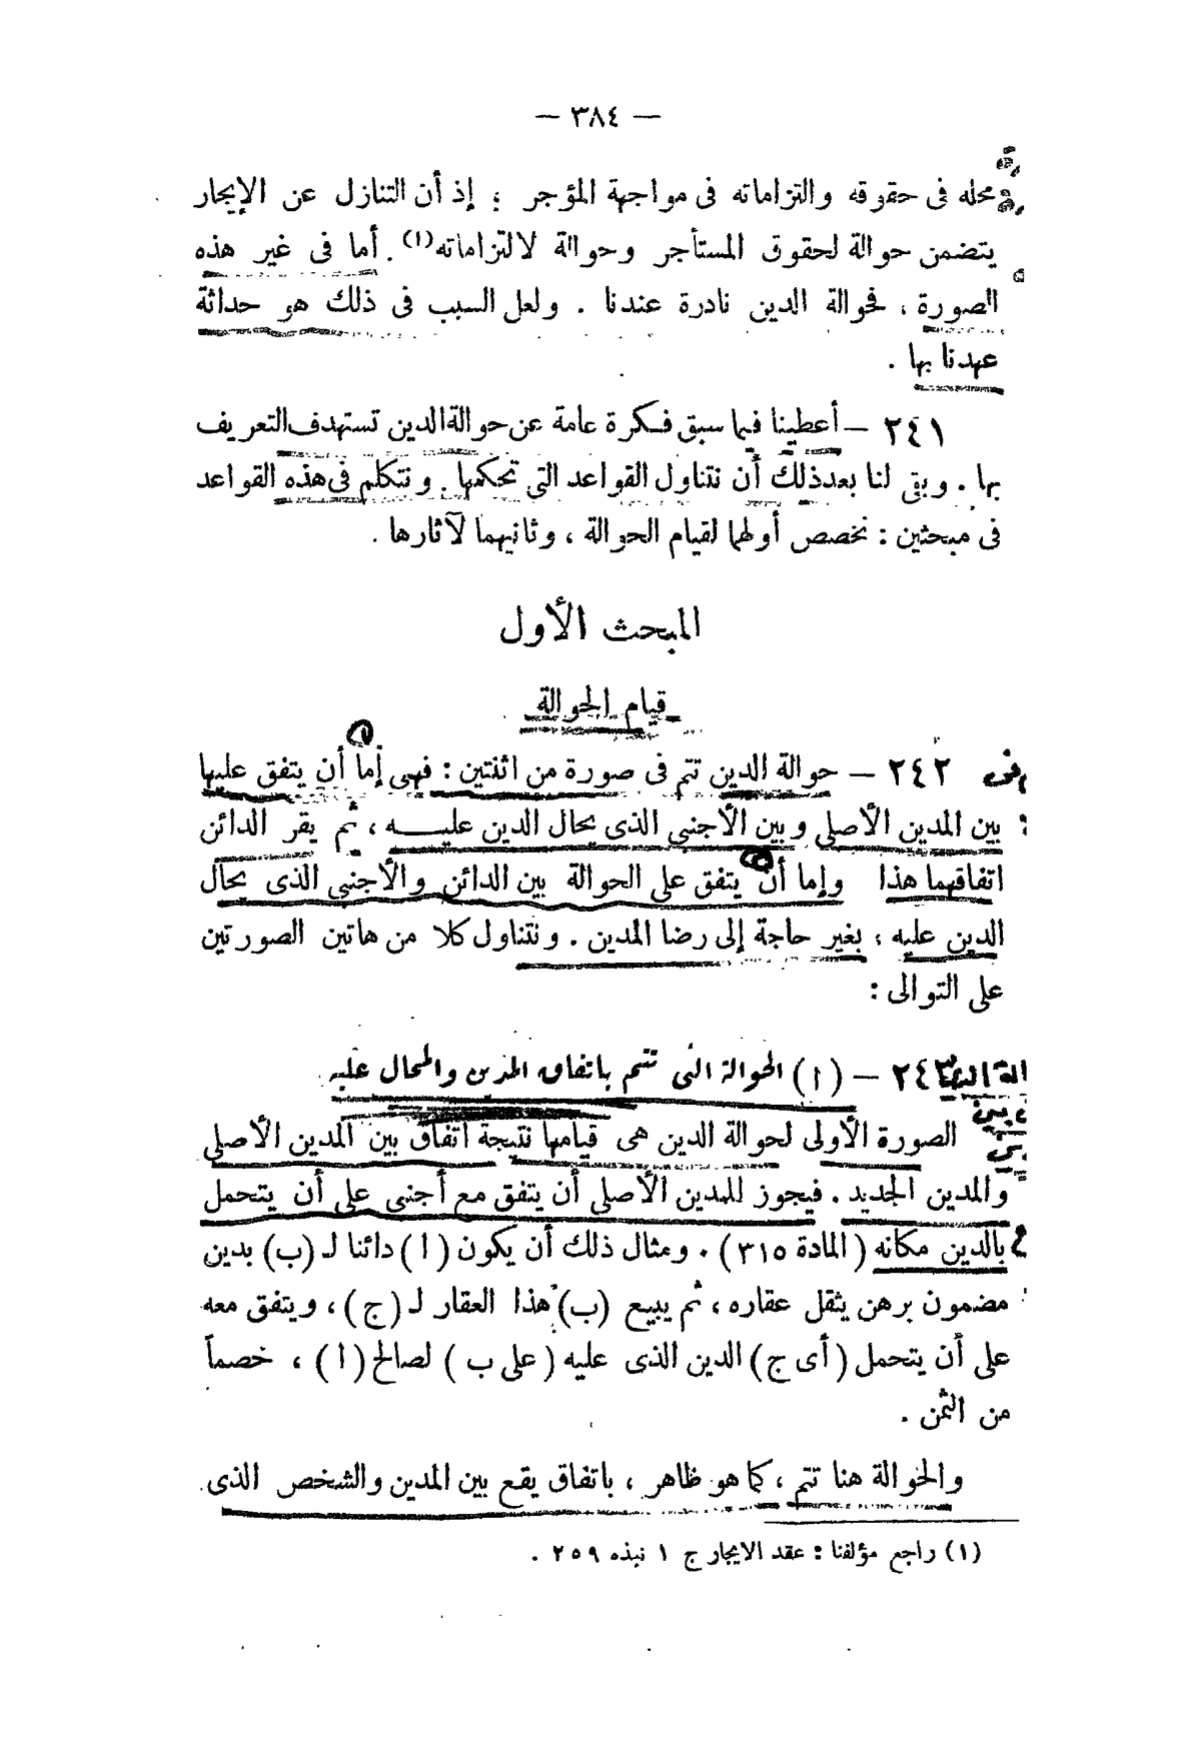 — ٣٨٤ —
محله فى حقوقه والتزاماته فى مواجهة المؤجر ؛ إذ أن التنازل عن الإيجار
يتضمن حوالة لحقوق المستأجر وحوالة لالتزاماته(١) . أما فى غير هذه
الصورة ، فحوالة الدين نادرة عندنا . ولعل السبب فى ذلك هو حداثة
عهدنا بها .
٢٤١ — أعطينا فيما سبق فكرة عامة عن حوالة الدين تستهدف التعريف
بها . وبقى لنا بعد ذلك أن نتناول القواعد التى تحكمها . ونتكلم فى هذه القواعد
فى مبحثين : نخصص أولهما لقيام الحوالة ، وثانيهما لآثارها .
المبحث الأول
قيام الحوالة
٢٤٢ — حوالة الدين تتم فى صورة من اثنتين : فهى إما أن يتفق عليها
بين المدين الأصلى وبين الأجنبى الذى يحال الدين عليه ، ثم يقر الدائن
اتفاقهما هذا وإما أن يتفق على الحوالة بين الدائن والأجنبى الذى يحال
الدين عليه ، بغير حاجة إلى رضا المدين . ونتناول كلا من هاتين الصورتين
على التوالى :
٢٤٣ — ( ا ) الحوالة التى تتم باتفاق المدين والمحال عليه
الصورة الأولى لحوالة الدين هى قيامها نتيجة اتفاق بين المدين الأصلى
والمدين الجديد . فيجوز للمدين الأصلى أن يتفق مع أجنبى على أن يتحمل
بالدين مكانه ( المادة ٣١٥ ) . ومثال ذلك أن يكون ( ا ) دائنا لـ (ب) بدين
مضمون برهن يثقل عقاره ، ثم يبيع (ب) هذا العقار لـ ( ج ) ، ويتفق معه
على أن يتحمل ( أى ج ) الدين الذى عليه ( على ب ) لصالح ( ا ) ، خصماً
من الثمن .
والحوالة هنا تتم ، كما هو ظاهر ، باتفاق يقع بين المدين والشخص الذى
(١) راجع مؤلفنا : عقد الايجار ج ١ نبذه ٢٥٩ .